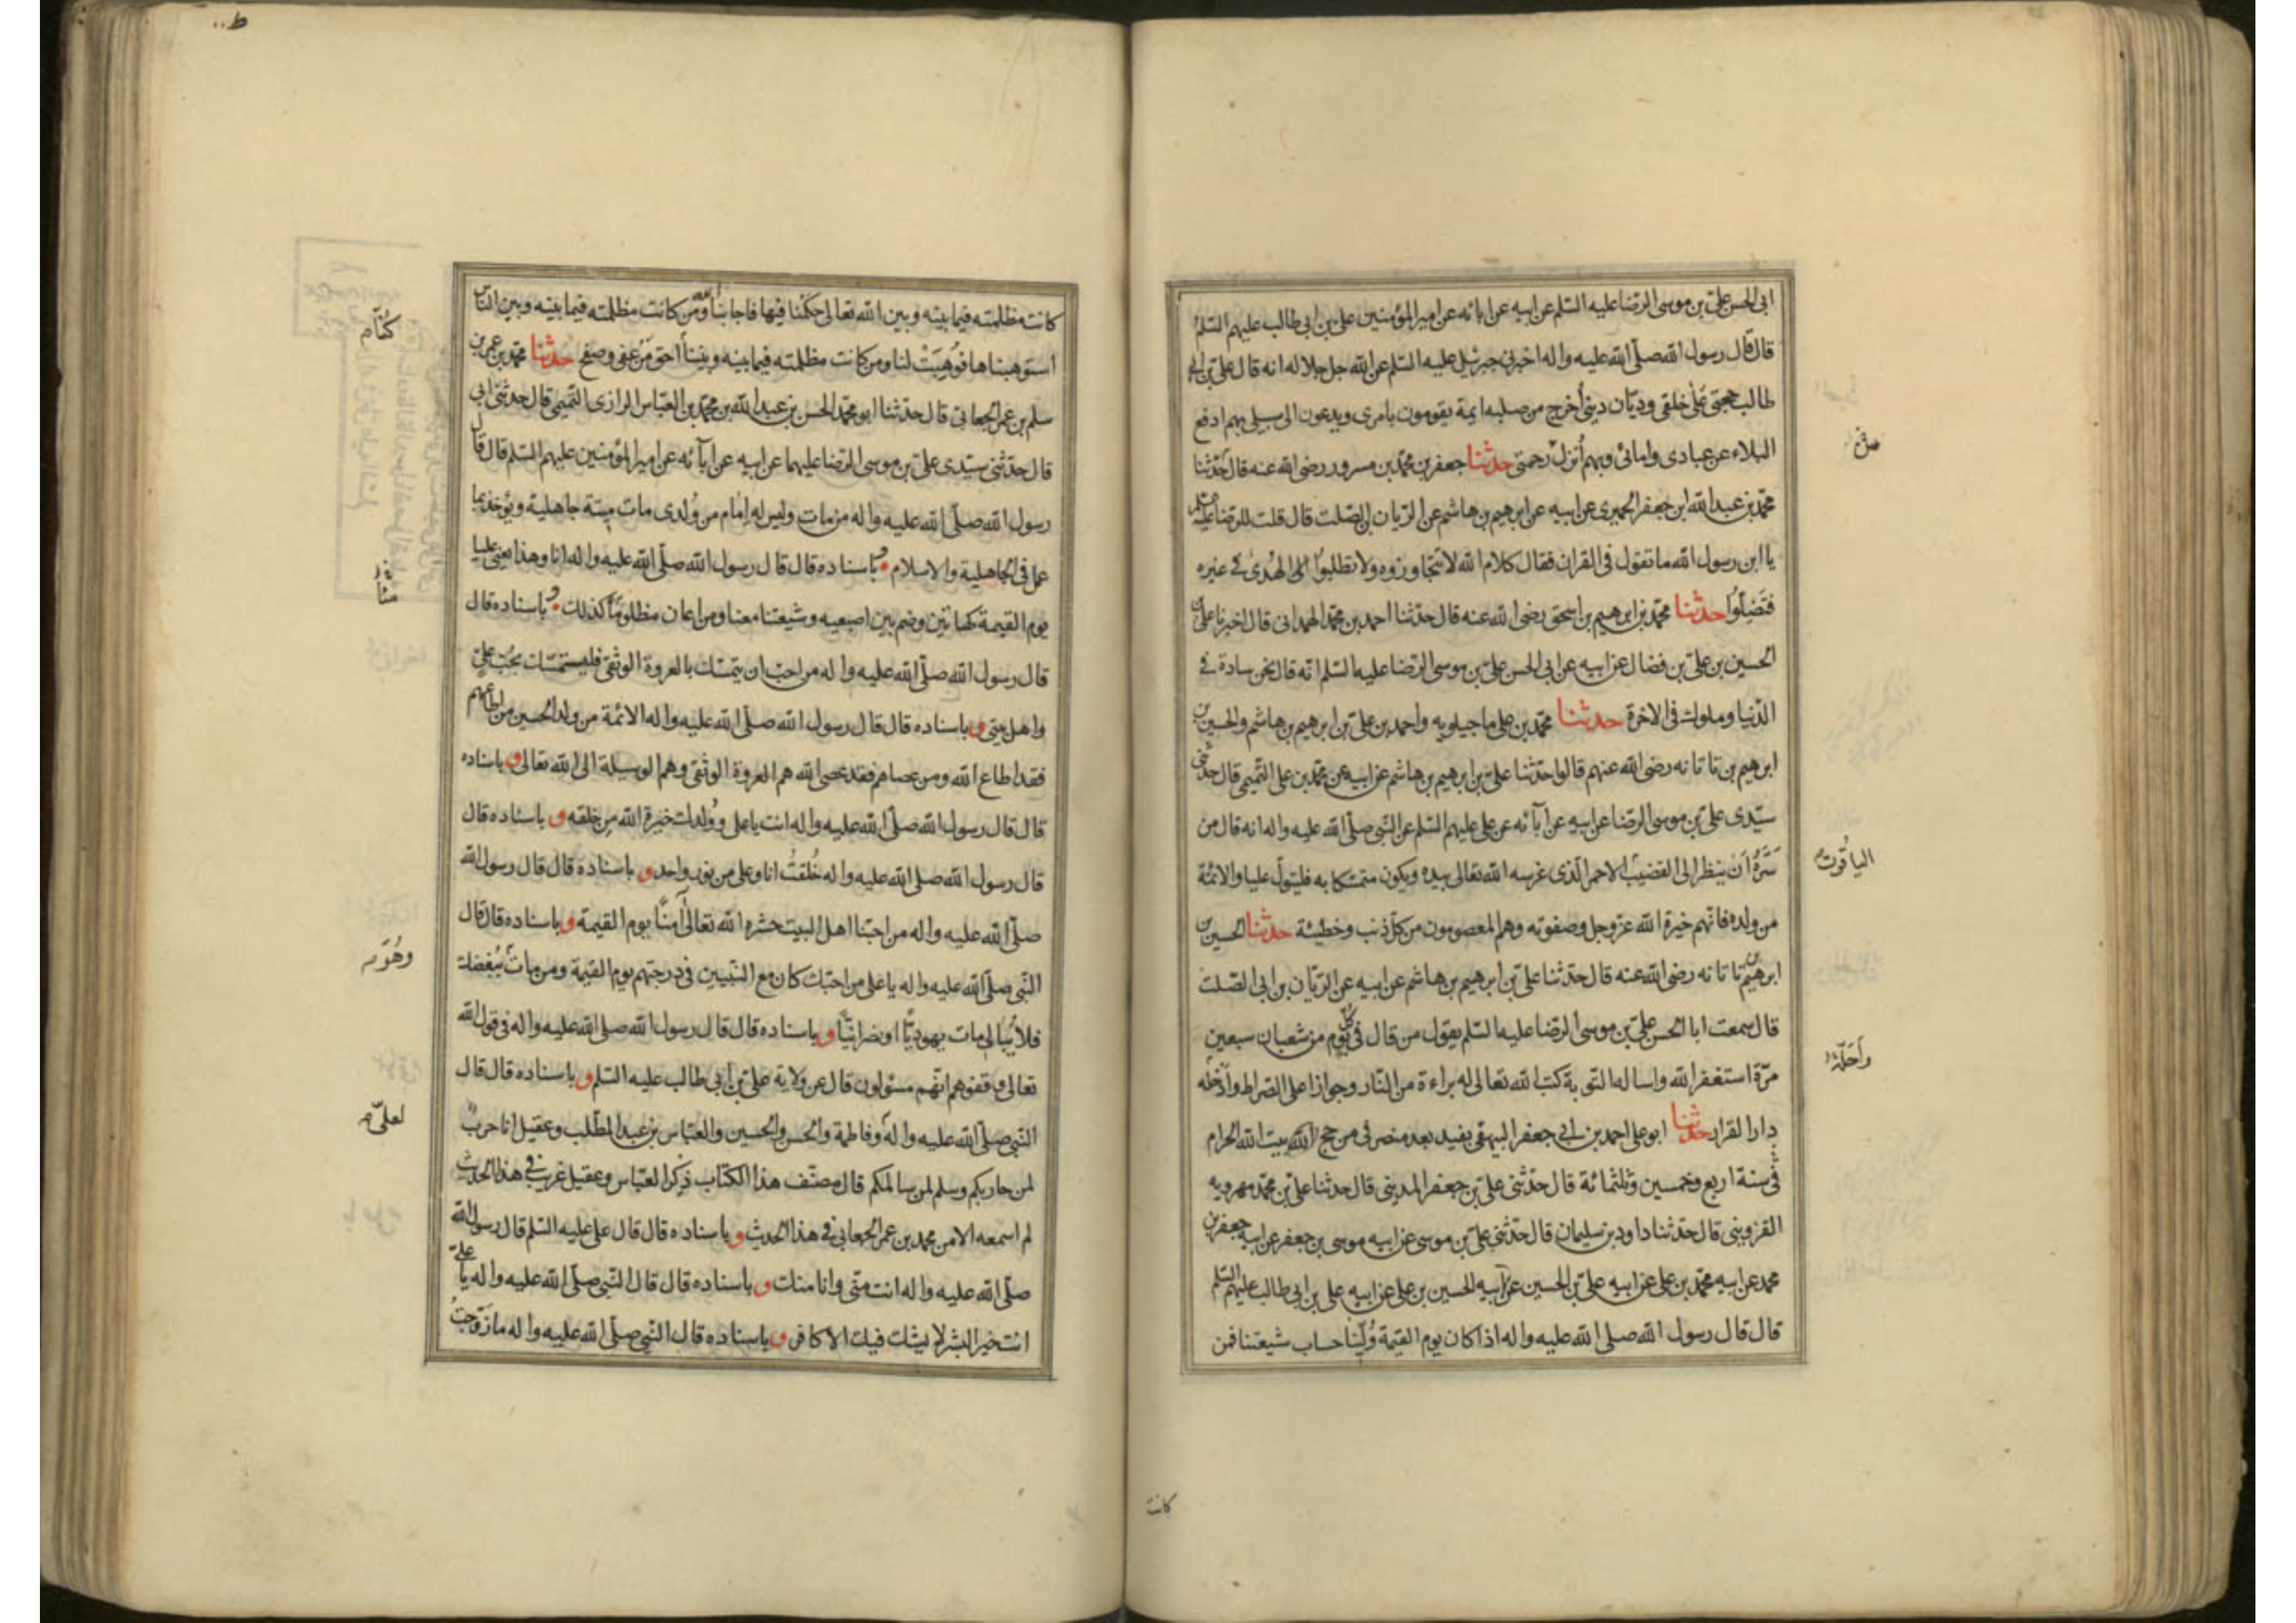 ابى الحسن على بن موسى الرضا عليه السلم عن ابيه عن ابائه عن امير المؤمنين على بن ابى طالب عليهم السلم
قال قال رسول الله صلى الله عليه واله اخبرنى جبرئيل عليه السلم عن الله جل جلاله انه قال على بن ابى
طالب حجتى على خلقى وديّان دينى أخرج من صلبه ايمة يقومون بامرى ويدعون الى سبيلى بهم ادفع
البلاء عن عبادى وامائى وبهم أنزل رحمتى حدثنا جعفر بن محمد بن مسرور رضى الله عنه قال حدّثنا
محمد بن عبد الله ابن جعفر الحميرى عن ابيه عن ابرهيم بن هاشم عن الريان بن الصلت قال قلت للرضا عليه السلم
يا ابن رسول الله ما تقول فى القران فقال كلام الله لا تتجاوزوه ولا تطلبوا الهُدىٰ فے غيره
فتَضِلّوُا حدثنا محمد بن ابرهيم بن اسحق رضى الله عنه قال حدثنا احمد بن محمد الهمدانى قال اخبرنا على بن
الحسين بن على بن فضال عن ابيه عن ابى الحسن على بن موسى الرضا عليه السلم انه قال نحن سادة فے
الدّنيا وملوك فى الاخرة حدثنا محمد بن على ماجيلويه واحمد بن على بن ابرهيم بن هاشم والحسين بن
ابرهيم بن تاتانه رضى الله عنهم قالوا حدّثنا على بن ابرهيم بن هاشم عن ابيه عن محمد بن على التميمى قال حدثنى
سيّدى على بن موسى الرضا عن ابيه عن آبائه عن على عليهم السلم عن النبى صلى الله عليه واله انه قال من
سَرَّهُ اَن ينظر الى القضيب الاحمر الّذى غرسه الله تعالى بيده ويكون متمسّكا به فليتولّ عليا والائمّة
من ولده فانهم خيرة الله عزّ وجل وصفوته وهم المعصومون من كلّ ذنب وخطيئة حدثنا الحسين بن
ابرهيم بن تاتانه رضى الله عنه قال حدثنا على بن ابرهيم بن هاشم عن ابيه عن الريّان بن ابى الصّلت
قال سمعت ابا الحسن على بن موسى الرضا عليه السلم يقول من قال فى كلّ يوم من شعبان سبعين
مرّة استغفر الله واساله التوبة كتب الله تعالى له براءة من النّار وجوازا على الصراط وأدخله
دار القرار حدثنا ابو على احمد بن ابى جعفر البيهقى بفيد بعد منصرفى من حج بيت الله الحرام
فى سنة اربع وخمسين وثلثمائة قال حدّثنى على بن جعفر المدينى قال حدثنا على بن محمد مهرويه
القزوينى قال حدثنا داود بن سليمان قال حدّثنى على بن موسى عن ابيه موسى بن جعفر عن ابيه جعفر بن
محمد عن ابيه محمد بن على عن ابيه على بن الحسين عن ابيه الحسين بن على عن ابيه على بن ابى طالب عليهم السلم
قال قال رسول الله صلى الله عليه واله اذا كان يوم القيمة وُلّينا حساب شيعتنا فمن
الياقوت
وأحلّه
كانت
كانت مظلمته فيما بينه وبين الله تعالى حكمنا فيها فاجابنا ومن كانت مظلمته فيما بينه وبين الناس
استوهبناها فوُهِبَتْ لنا ومن كانت مظلمته فيما بينه وبيننا احق من عفى وصفح حدثنا محمد بن عمر بن
سلم بن عمر الجعابى قال حدّثنا ابو محمد الحسن بن عبد الله بن محمد بن العبّاس الرازى التميمى قال حدثنى ابى
قال حدّثنى سيّدى على بن موسى الرضا عليهما عن ابيه عن آبائه عن امير المؤمنين عليهم السلم قال قال
رسول الله صلّى الله عليه واله من مات وليس له إمام من وُلدى مات ميتة جاهلية ويؤخذ بما
عمل فى الجاهلية والاسلام و باسناده قال قال رسول الله صلى الله عليه واله انا وهذا يعنى عليا
يوم القيمة كهاتين وضم بين اصبعيه وشيعتنا معنا ومن اعان مظلومنا كذلك و باسناده قال
قال رسول الله صلى الله عليه واله من احبّ ان يتمسّك بالعروة الوثقى فليستمسك بحُبّ علىّ
واهل بيتى و باسناده قال قال رسول الله صلى الله عليه واله الائمّة من ولد الحسين من اطاعهم
فقد اطاع الله ومن عصاهم فقد عصى الله هم العروة الوثقى وهم الوسيلة الى الله تعالى و باسناده
قال قال رسول الله صلى الله عليه واله انت يا على ووُلدك خيرة الله من خلقه و باسناده قال
قال رسول الله صلى الله عليه واله خُلقتُ انا وعلى من نور واحد و باسناده قال قال رسول الله
صلّى الله عليه واله من احبّنا اهل البيت حشره الله تعالى آمنًا يوم القيمة و باسناده قال قال
النّبى صلى الله عليه واله يا على من احبّك كان مع النّبيين فى درجتهم يوم القيمة ومن مات يُبغضك
فلا يُبالى مات يهوديّا او نصرانيّا و باسناده قال قال رسول الله صلى الله عليه واله فى قول الله
تعالى وقفوهم انّهم مسئولون قال عن ولاية على بن ابى طالب عليه السّلم و باسناده قال قال
النّبى صلى الله عليه واله وفاطمة والحسن والحسين والعبّاس بن عبد المطّلب وعقيل انا حربٌ
لمن حاربكم وسلم لمن سالمكم قال مصنّف هذا الكتاب ذكر العبّاس وعقيل غريب فى هذا الحديث
لم اسمعه الا من محمد بن عمر الجعابى فے هذا الحديث و باسناده قال قال على عليه السلم قال رسول الله
صلّى الله عليه واله انت منّى وانا منك و باسناده قال قال النّبى صلى الله عليه واله يا على
انت خير البشر لا يشك فيك الا كافر و باسناده قال النّبى صلى الله عليه واله ما زوّجتُ
كُنّا
وهُوَ
لعلىّ